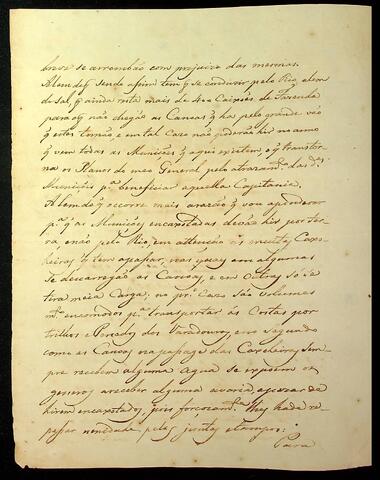 breve se arrombão com prejuizo das mesmas.
Alem de q̃ sendo assim tem q̃ se conduzir pelo Rio, alem
do Sal, q̃ ainda resta mais de 400 Caixões de Fazenda
para os q̃ não chegão as Canoas q̃ ha, pelo grande vão
q̃ estes tomão e em tal Caso não poderão hir no anno
q̃ vem todas as Munições q̃ aqui existem, e q̃ transtor-
na os Planos do meo General pelo atrazam.to das d.as
Munições p.a beneficiar aquella Capitania.
Alem do q̃ occorre mais a razão q̃ vou a ponderar
p.a q̃ as Munições encaixotadas devão hir por ter-
ra, e não pelo Rio, em attenção ás muitas Caxo-
eiras q̃ tem a passar, nas quaes em algumas
se descarregão as Canoas, e em Outras só se
tira meia Carga; no pr.o Caso são volumes
m.to encomodos p.a transportar ás Costas por
trilhos e dos Varadouros, e no segundo
como as Canoas na passage das Caxoeiras sem-
pre recebem alguma agua se expoem os
generos a receber alguma avaria apezar de
hirem encaixotados, pois forçozam.te lhes hade re-
passar a umidade pelas juntas e tampos:
Para